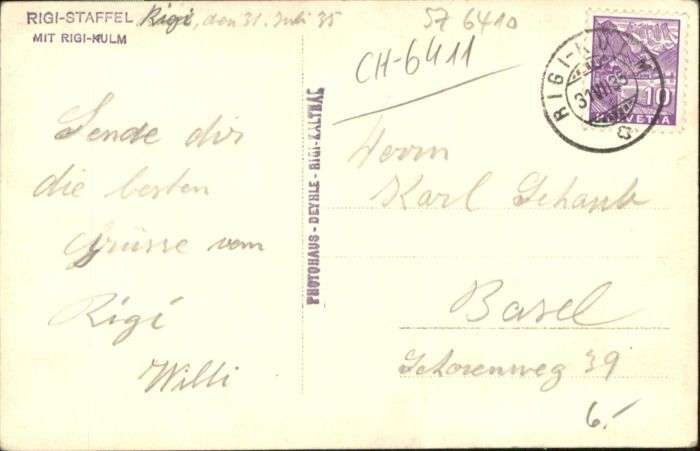 RIGI-STAFFEL
MIT RIGI-KULM
Rigi, den 31. Juli 35
SZ 6410
CH-6411
RIGI-KULM
31.VII.35
10
HELVETIA
PHOTOHAUS - DEYHLE - RIGI-KALTBAD
Sende dir
die besten
Grüsse vom
Rigi
Willi
Herrn
Karl Schaub
Basel
Schorenweg 39
6.-